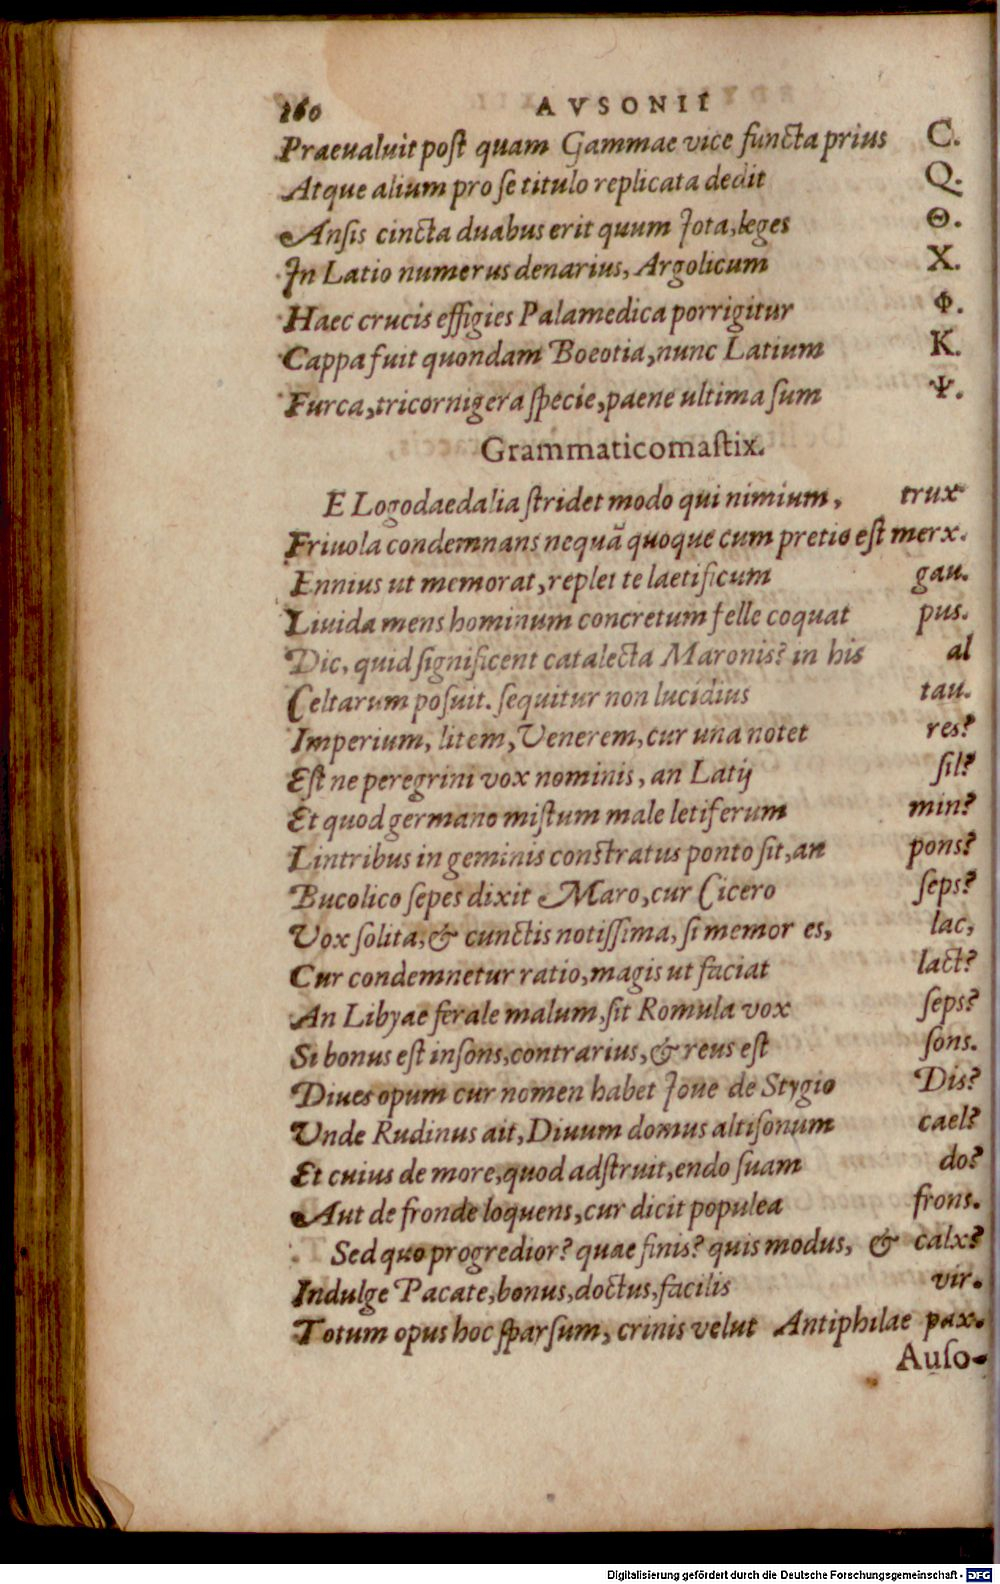 160 AVSONII
Praeualuit poſt quam Gammae vice functa prius C.
Atque alium pro ſe titulo replicata dedit Q.
Anſis cincta duabus erit quum Jota, leges Θ.
Jn Latio numerus denarius, Argolicum X.
Haec crucis effigies Palamedica porrigitur Φ.
Cappa fuit quondam Boeotia, nunc Latium K.
Furca, tricornigera ſpecie, paene ultima ſum Ψ.
Grammaticomaſtix.
E Logodaedalia ſtridet modo qui nimium, trux
Friuola condemnans nequã quoque cum pretio eſt merx.
Ennius ut memorat, replet te laetificum gau.
Liuida mens hominum concretum felle coquat pus.
Dic, quid ſignificent catalecta Maronis? in his al
Celtarum poſuit. ſequitur non lucidius tau.
Imperium, litem, Venerem, cur una notet res?
Eſt ne peregrini vox nominis, an Latij ſil?
Et quod germano miſtum male letiferum min?
Lintribus in geminis conſtratus ponto ſit, an pons?
Bucolico ſepes dixit Maro, cur Cicero ſeps?
Vox ſolita, & cunctis notiſſima, ſi memor es, lac,
Cur condemnetur ratio, magis ut faciat lact?
An Libyae ferale malum, ſit Romula vox ſeps?
Si bonus eſt inſons, contrarius, & reus eſt ſons.
Diues opum cur nomen habet Joue de Stygio Dis?
Vnde Rudinus ait, Diuum domus altiſonum cael?
Et cuius de more, quod adſtruit, endo ſuam do?
Aut de fronde loquens, cur dicit populea frons.
Sed quo progredior? quae finis? quis modus, & calx?
Indulge Pacate, bonus, doctus, facilis vir.
Totum opus hoc ſparſum, crinis velut Antiphilae pax.
Auſo-
Digitalisierung gefördert durch die Deutsche Forschungsgemeinschaft - DFG